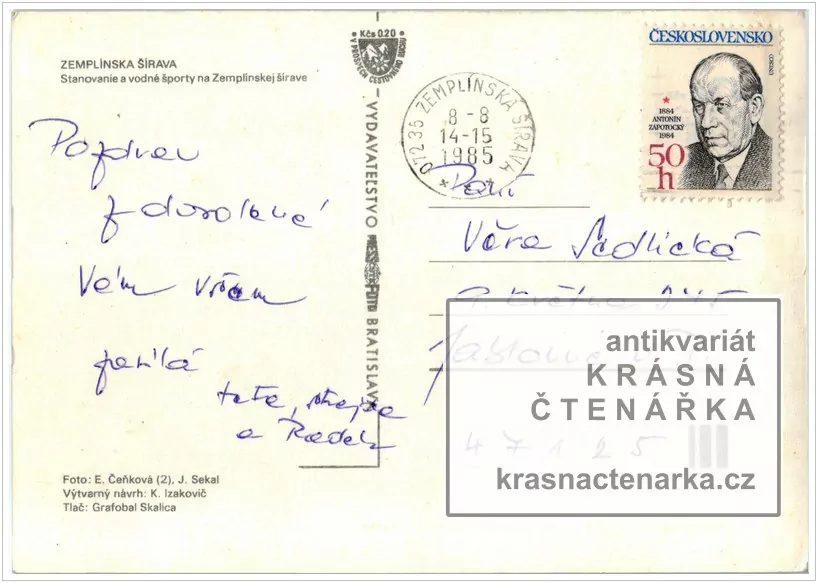 ZEMPLÍNSKA ŠÍRAVA
Stanovanie a vodné športy na Zemplínskej šírave
Pozdrav
z dovolené
Vám všem
posílá
táta, strejda
a Radek
Foto: E. Čeňková (2), J. Sekal
Výtvarný návrh: K. Izakovič
Tlač: Grafobal Skalica
Kčs 0.20
V PROSPECH CESTOVNÉHO RUCHU
VYDAVATEĽSTVO
PRESSFOTO
BRATISLAVA
07235 ZEMPLÍNSKA ŠÍRAVA
8 - 8
14-15
1985
ČESKOSLOVENSKO
★
1884
ANTONÍN
ZÁPOTOCKÝ
1984
50
h
Paní
Věra Sedlická
9. května 245
Jablonné v P.
47125
antikvariát
KRÁSNÁ
ČTENÁŘKA
krasnactenarka.cz